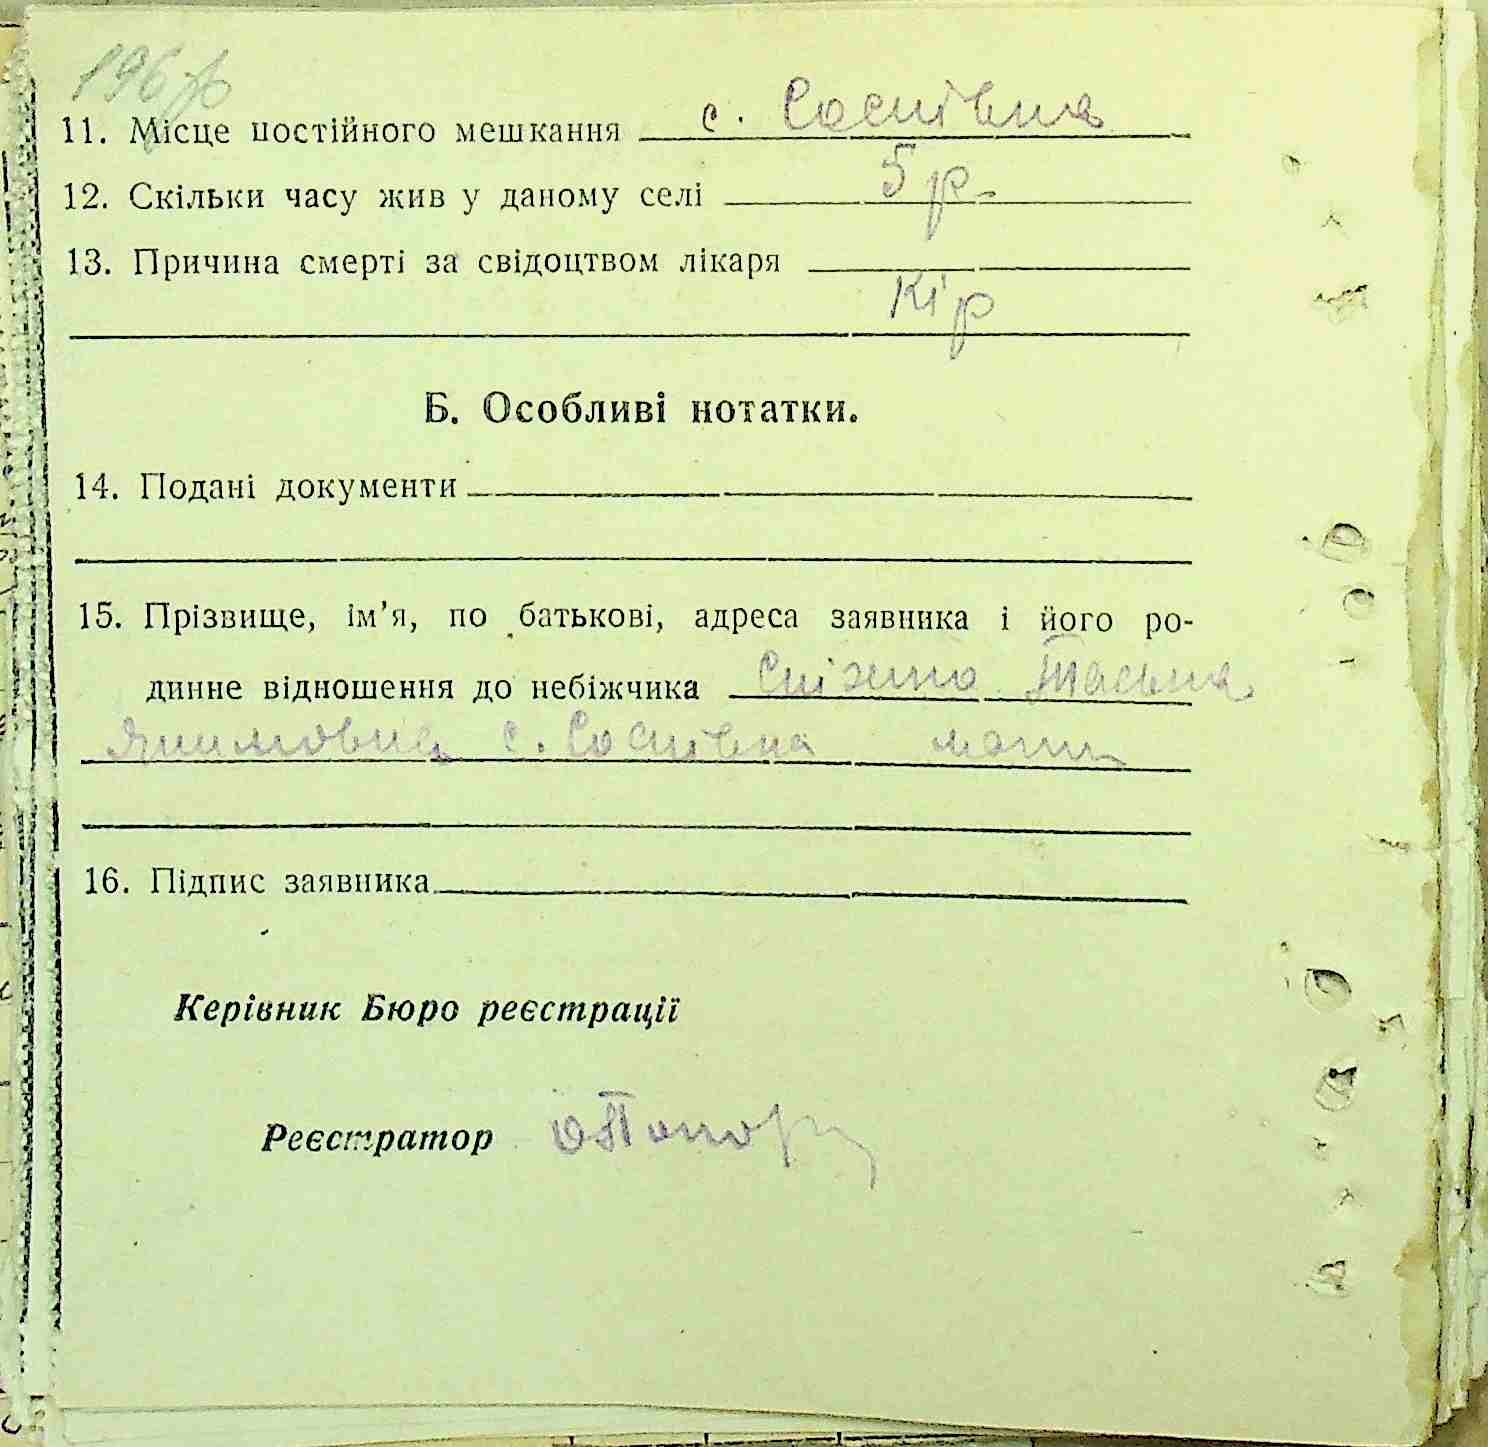 196
11. Місце постійного мешкання с. Соснівна
12. Скільки часу жив у даному селі 5 р.
13. Причина смерті за свідоцтвом лікаря
Кір
Б. Особливі нотатки.
14. Подані документи
15. Прізвище, ім’я, по батькові, адреса заявника і його ро-
динне відношення до небіжчика Сніжко
Якимовна с. Соснівна мати
16. Підпис заявника
Керівник Бюро реєстрації
Реєстратор